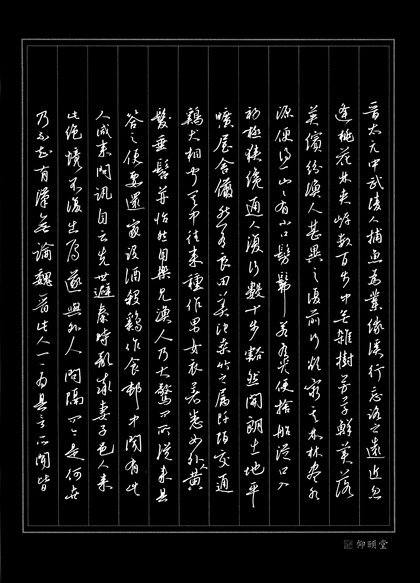 晉太元中武陵人捕魚為業緣溪行忘路之遠近忽
逢桃花林夾岸數百步中無雜樹芳草鮮美落
英繽紛漁人甚異之復前行欲窮其林林盡水
源便得一山山有小口髣髴若有光便捨船從口入
初極狹纔通人復行數十步豁然開朗土地平
曠屋舍儼然有良田美池桑竹之屬阡陌交通
鷄犬相聞其中往來種作男女衣著悉如外人黃
髮垂髫并怡然自樂見漁人乃大驚問所從來具
答之便要還家設酒殺鷄作食邨中聞有此
人咸來問訊自云先世避秦時亂率妻子邑人來
此絕境不復出焉遂與外人間隔問今是何世
乃不知有漢無論魏晉此人一一為具言所聞皆
仰頤堂